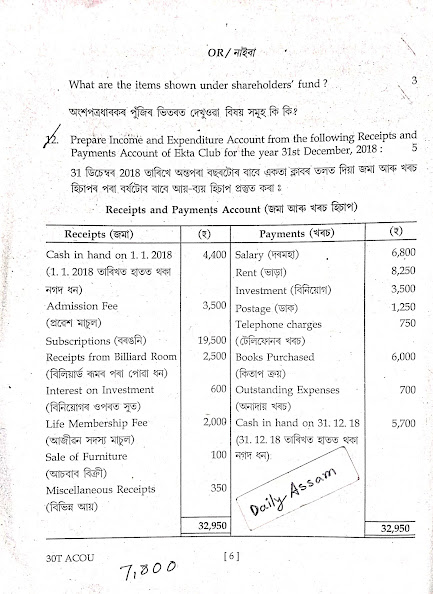 OR/নাইবা
What are the items shown under shareholders' fund ? 3
অংশপত্ৰধাৰকৰ পুঁজিৰ ভিতৰত দেখুওৱা বিষয় সমূহ কি কি?
12. Prepare Income and Expenditure Account from the following Receipts and
Payments Account of Ekta Club for the year 31st December, 2018 : 5
31 ডিচেম্বৰ 2018 তাৰিখে অন্তপৰা বছৰটোৰ বাবে একতা ক্লাবৰ তলত দিয়া জমা আৰু খৰচ
হিচাপৰ পৰা বৰ্ষটোৰ বাবে আয়-ব্যয় হিচাপ প্ৰস্তুত কৰা ঃ
Receipts and Payments Account (জমা আৰু খৰচ হিচাপ)
Receipts (জমা) (₹) Payments (খৰচ) (₹)
Cash in hand on 1. 1. 2018 4,400 Salary (দৰমহা) 6,800
(1. 1. 2018 তাৰিখত হাতত থকা Rent (ভাড়া) 8,250
নগদ ধন) Investment (বিনিয়োগ) 3,500
Admission Fee 3,500 Postage (ডাক) 1,250
(প্ৰবেশ মাচুল) Telephone charges 750
Subscriptions (বৰঙনি) 19,500 (টেলিফোনৰ খৰচ)
Receipts from Billiard Room 2,500 Books Purchased 6,000
(বিলিয়াৰ্ড ৰূমৰ পৰা পোৱা ধন) (কিতাপ ক্ৰয়)
Interest on Investment 600 Outstanding Expenses 700
(বিনিয়োগৰ ওপৰত সুত) (অনাদায় খৰচ)
Life Membership Fee 2,000 Cash in hand on 31. 12. 18 5,700
(আজীৱন সদস্য মাচুল) (31. 12. 18 তাৰিখত হাতত থকা
Sale of Furniture 100 নগদ ধন)
(আচবাব বিক্ৰী)
Miscellaneous Receipts 350
(বিভিন্ন আয়)
Daily Assam
32,950 32,950
30T ACOU [ 6 ]
7,800